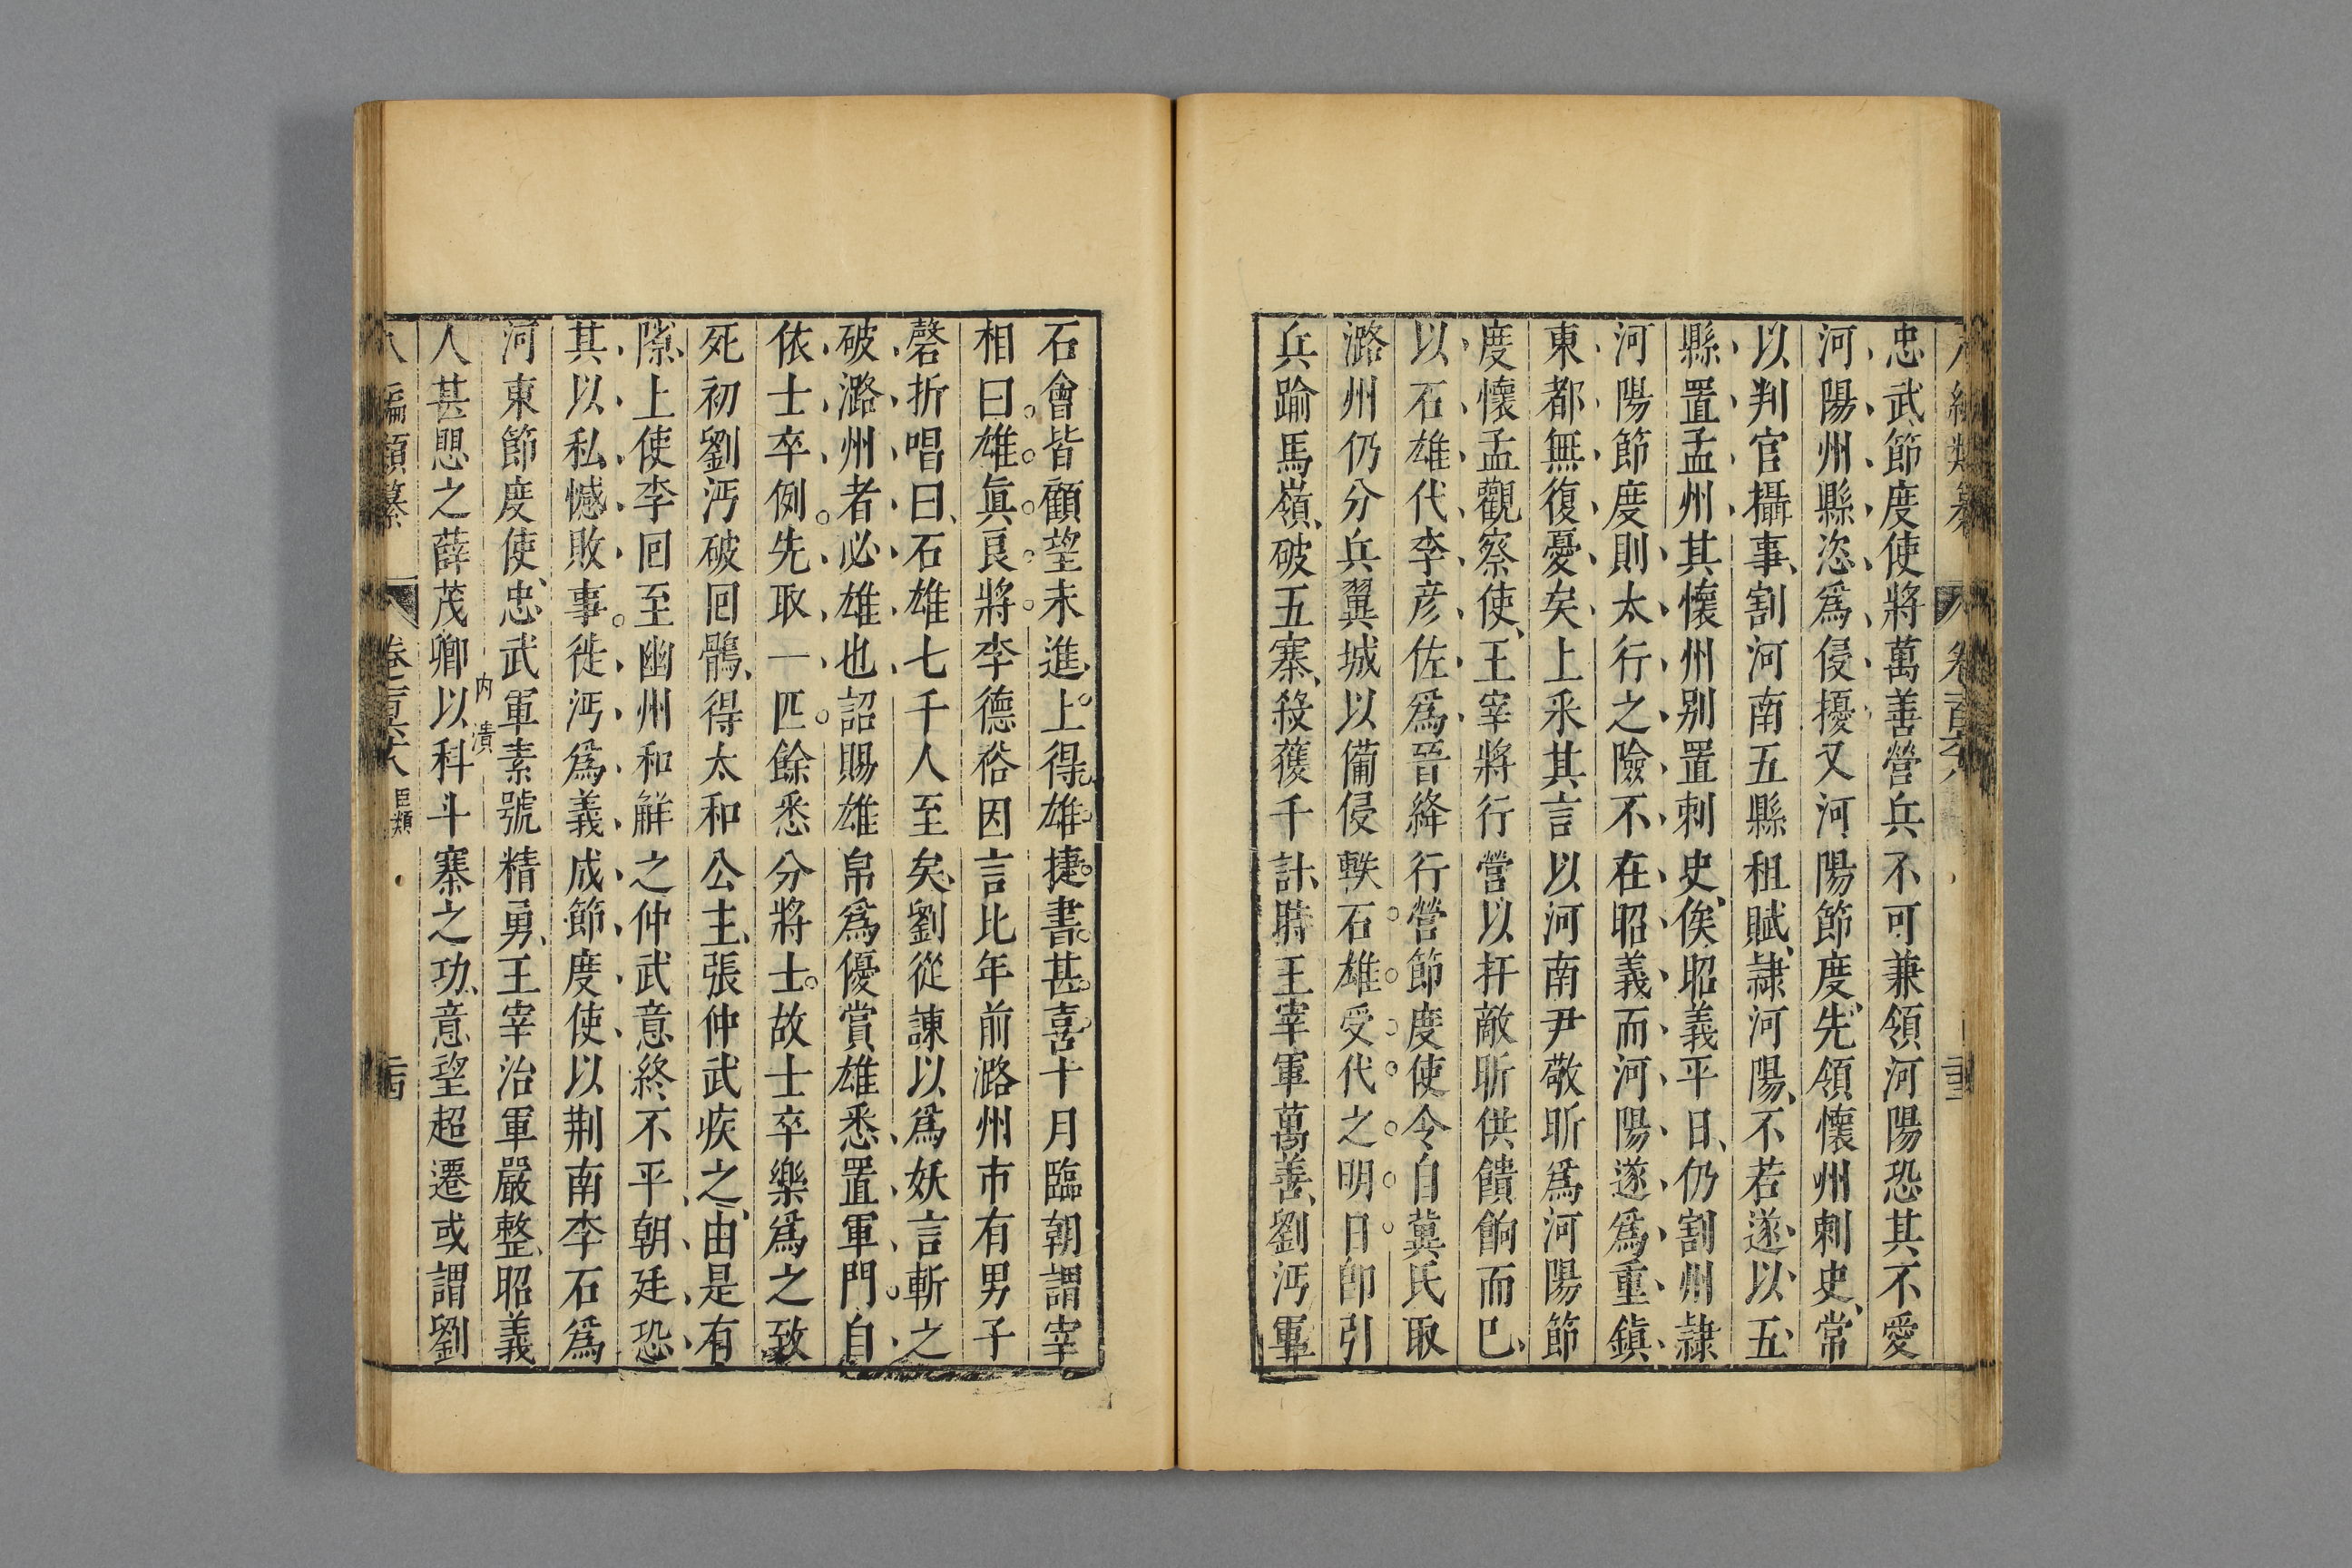 忠武節度使將萬善營兵不可兼領河陽恐其不愛
河陽州縣恣爲侵擾又河陽節度先領懷州刺史常
以判官攝事割河南五縣租賦隷河陽不若遂以五
縣置孟州其懷州别置刺史俟昭義平日仍割州隷
河陽節度則太行之險不在昭義而河陽遂爲重鎮
東都無復憂矣上釆其言以河南尹敬昕爲河陽節
度懷孟觀察使王宰將行營以扞敵昕供饋餉而已
以石雄代李彦佐爲晉絳行營節度使令自冀氏取
潞州仍分兵翼城以備侵軼石雄受代之明日卽引
兵踰馬嶺破五寨殺獲千計時王宰軍萬善劉沔軍
石會皆顧望未進上得雄捷書甚喜十月臨朝謂宰
相曰雄眞良將李德裕因言比年前潞州市有男子
磬折唱曰石雄七千人至矣劉從諫以爲妖言斬之
破潞州者必雄也詔賜雄帛爲優賞雄悉置軍門自
依士卒例先取一匹餘悉分將士故士卒樂爲之致
死初劉沔破回鶻得太和公主張仲武疾之由是有
隙上使李回至幽州和解之仲武意終不平朝廷恐
其以私憾敗事徙沔爲義成節度使以荆南李石爲
河東節度使忠武軍素號精勇王宰治軍嚴整昭義
内潰
人甚思之薛茂卿以科斗寨之功意望超遷或謂劉
八編類纂 卷一百六 臣類 二十四